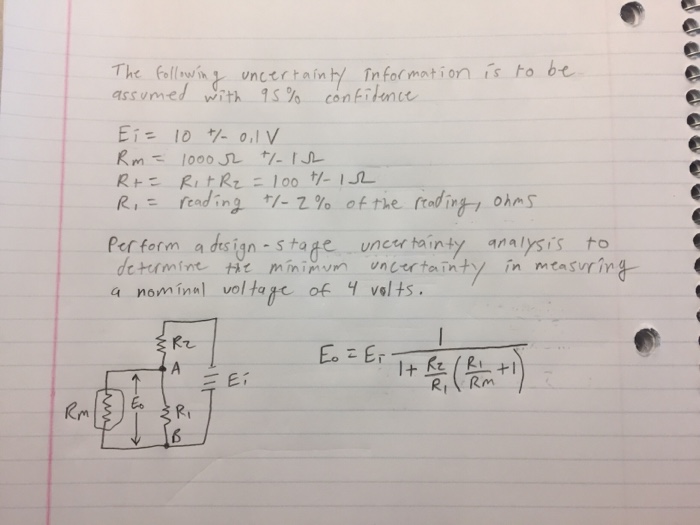 The following uncertainty information is to be
assumed with 95% confidence
Ei = 10 +/- 0.1 V
Rm = 1000 Ω +/- 1 Ω
Rt = R1 + R2 = 100 +/- 1 Ω
R1 = reading +/- 2% of the reading, ohms
Perform a design-stage uncertainty analysis to
determine the minimum uncertainty in measuring
a nominal voltage of 4 volts.
R2
A
Ei
Rm
Eo
R1
B
Eo = Ei 1 / (1 + R2/R1 (R1/Rm + 1))